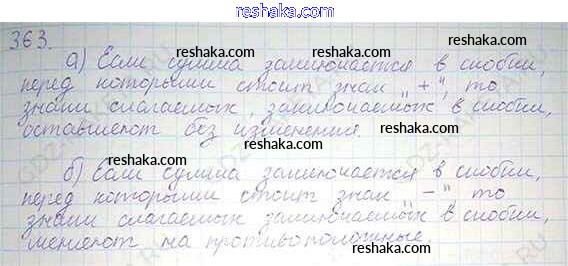 reshaka.com
363.
reshaka.com
а) Если сумма заключается в скобки,
reshaka.com
перед которыми стоит знак „+“, то
reshaka.com
знаки слагаемых, заключаемых в скобки,
оставляют без изменения.
reshaka.com
reshaka.com
б) Если сумма заключается в скобки,
reshaka.com
перед которыми стоит знак „–“ то
reshaka.com
знаки слагаемых заключаемых в скобки,
меняют на противоположные.
reshaka.com
reshaka.com